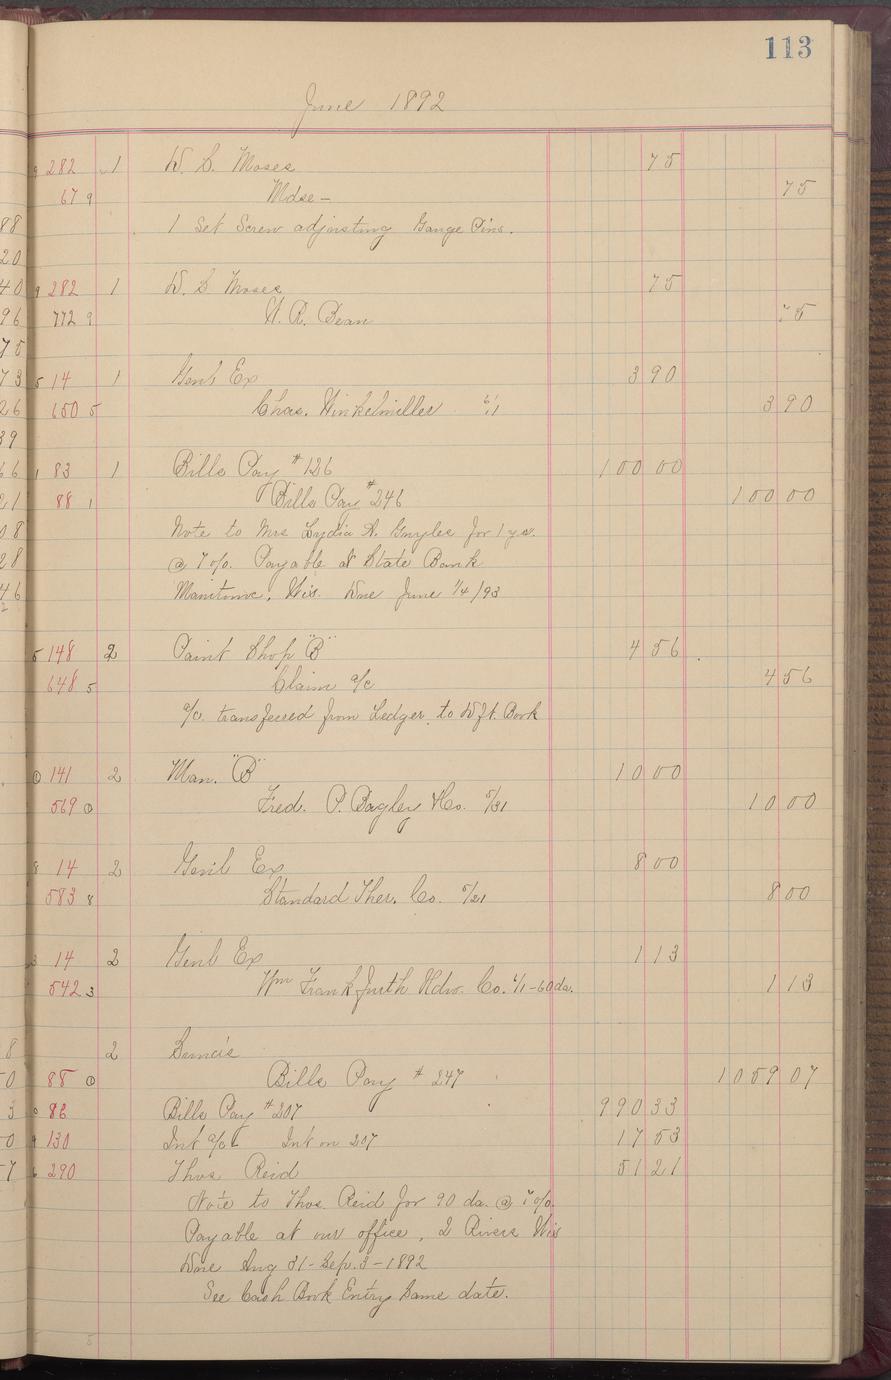 113
June 1892
9 282 1 W. S. Moses 75
67 9 Mdse - 75
1 Set Screw adjusting Gauge Pins.
9 282 1 W. S Moses 75
772 9 W. R. Bean 75
5 14 1 Genl Ex 3 90
650 5 Chas. Winkelmiller 6/1 3 90
1 83 1 Bills Pay #126 100 00
88 1 Bills Pay #246 100 00
Note to Mrs Lydia A. for 1 yr.
@ 7%. Payable at State Bank
Wis. Due June 1/4/93
5 148 2 Paint Shop "B" 4 56
648 5 Claim a/c 4 56
a/c. transferred from Ledger to Dft. Book
0 141 2 Man. "B" 10 00
569 0 Fred. P. Bagley & Co. 5/31 10 00
8 14 2 Genl Ex 8 00
583 8 Standard Ther. Co. 5/21 8 00
3 14 2 Genl Ex 1 13
542 3 Wm Frankfurth Hdw. Co. 6/1-60da. 1 13
2 Sundris
88 0 Bills Pay # 247 1059 07
88 Bills Pay #207 990 33
9 130 Int a/c Int on 207 17 53
6 290 Thos Reid 51 21
Note to Thos. Reid for 90 da. @ 7%.
Payable at our office, 2 Rivers Wis
Due Aug 31-Sep. 3-1892
See Cash Book Entry Same date.